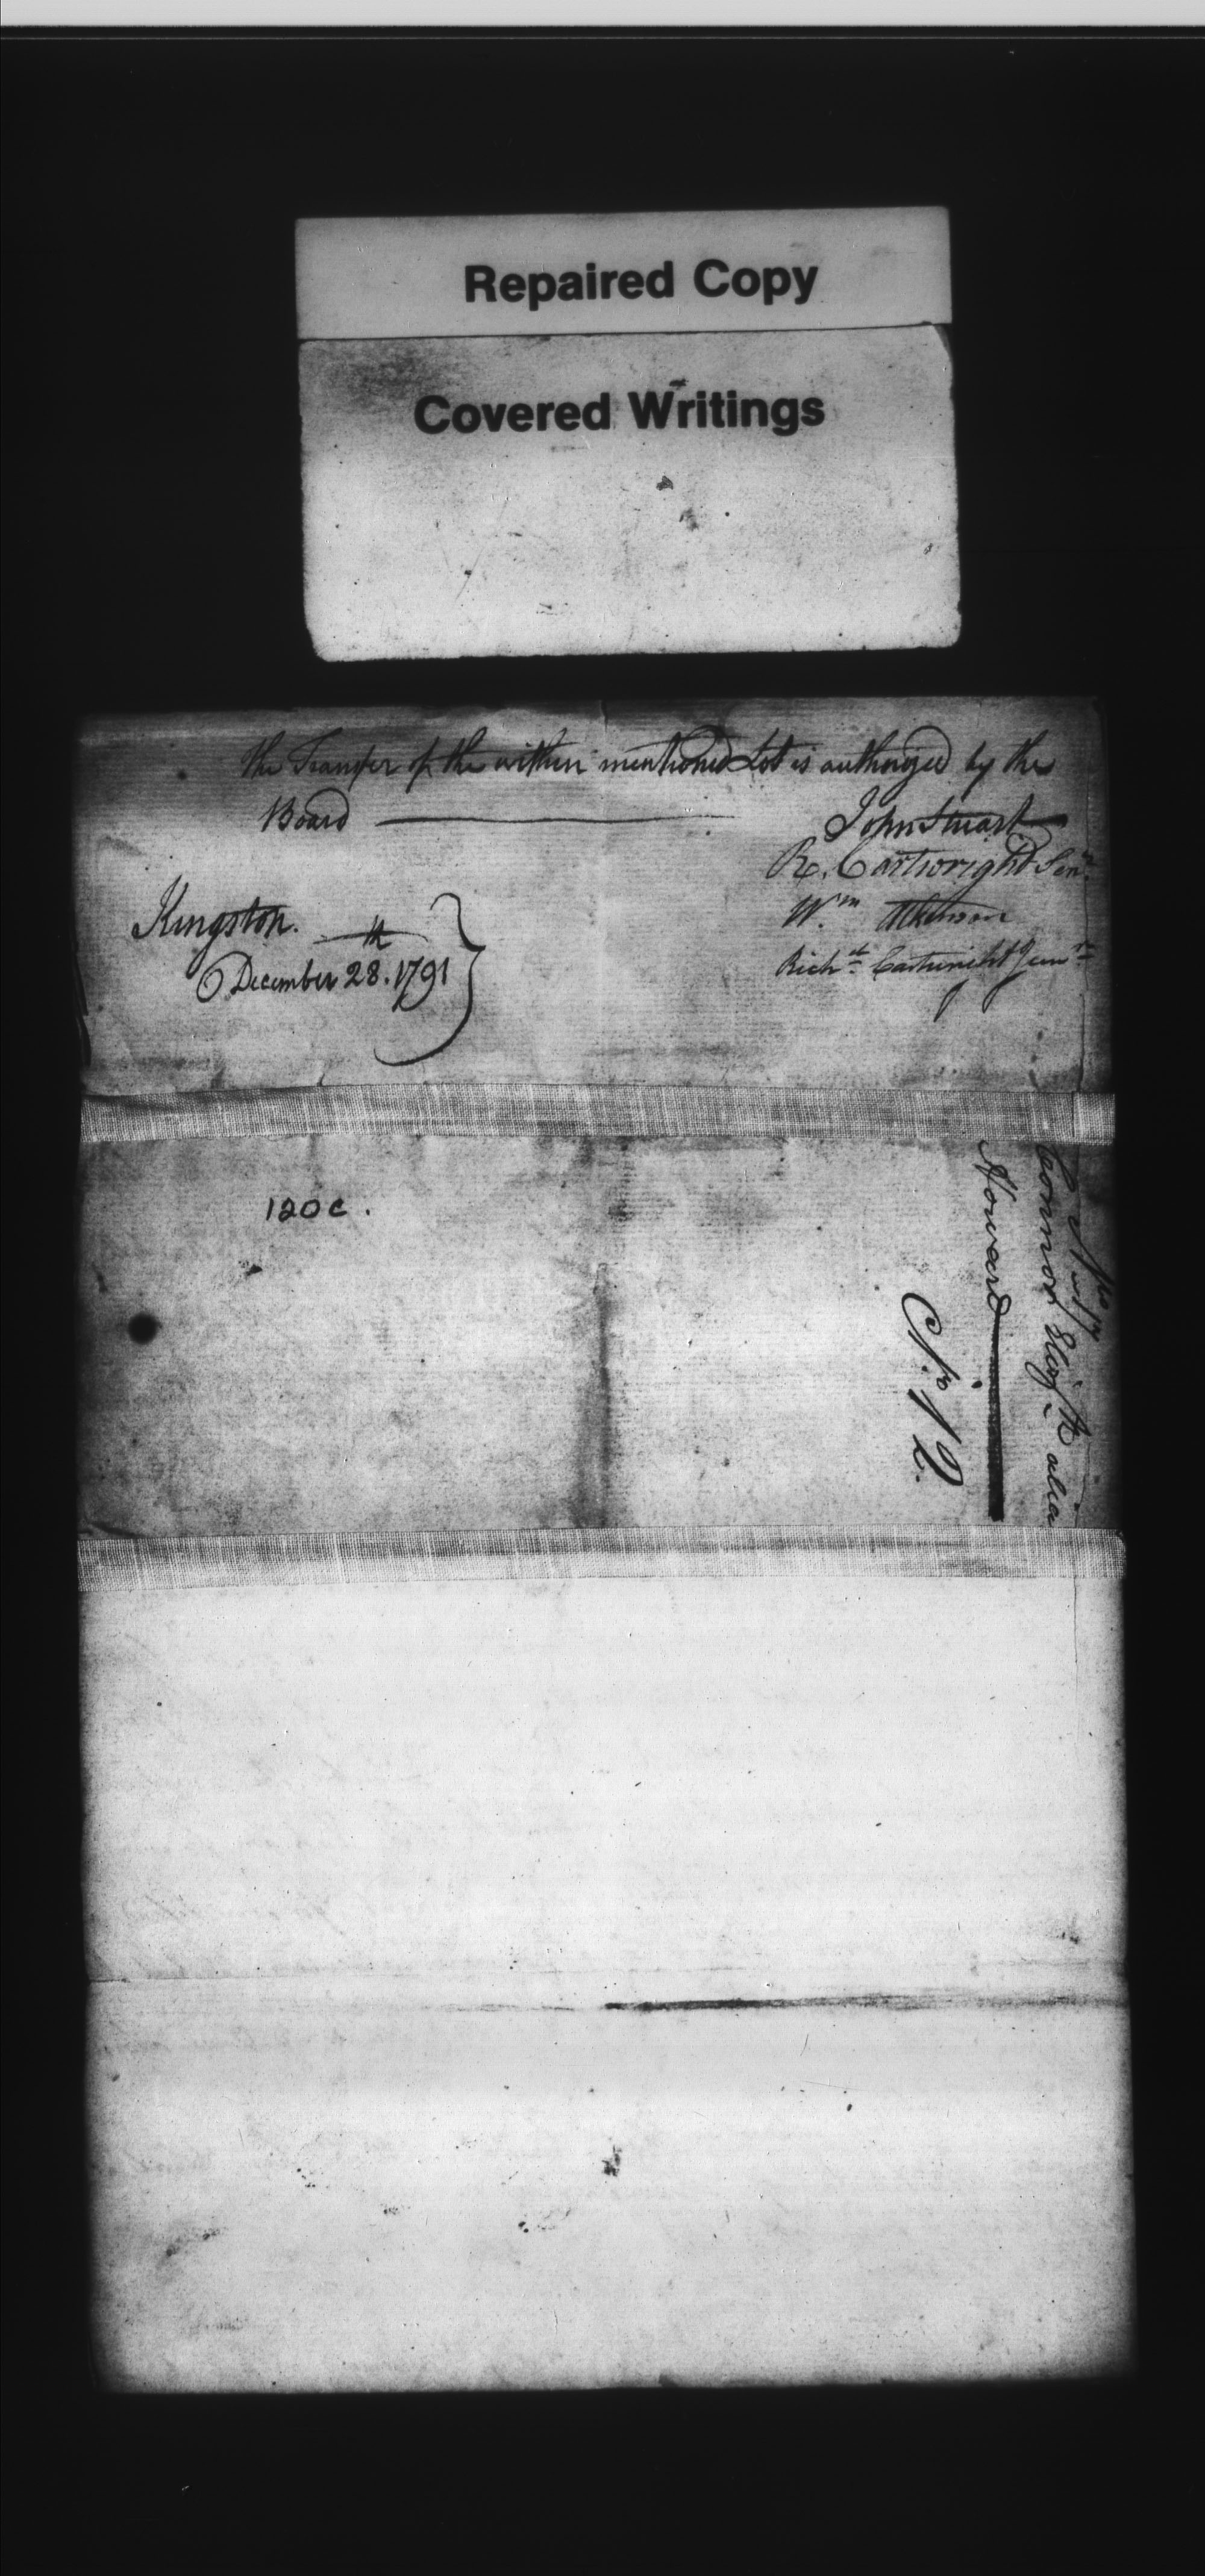 Repaired Copy
Covered Writings
The Transfer of the within mentioned Lot is authorized by the
Board
John Stuart
R. Cartwright Senr.
Wm. Atkinson
Richd. Cartwright Junr.
Kingston.
December 28.th 1791
120c.
Howard
No. 12.